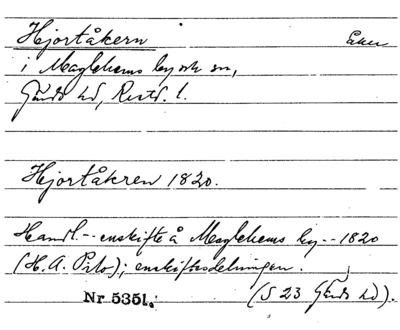 Hjortåkern Åker
i Maglehems by och sn,
Gärds hd, Krist. l.
Hjortåkren 1820.
Handl. - enskifte å Maglehems by - 1820
(H. A. Pihl); enskiftesdelningen.
Nr 5351. (S 23 Gärds hd).